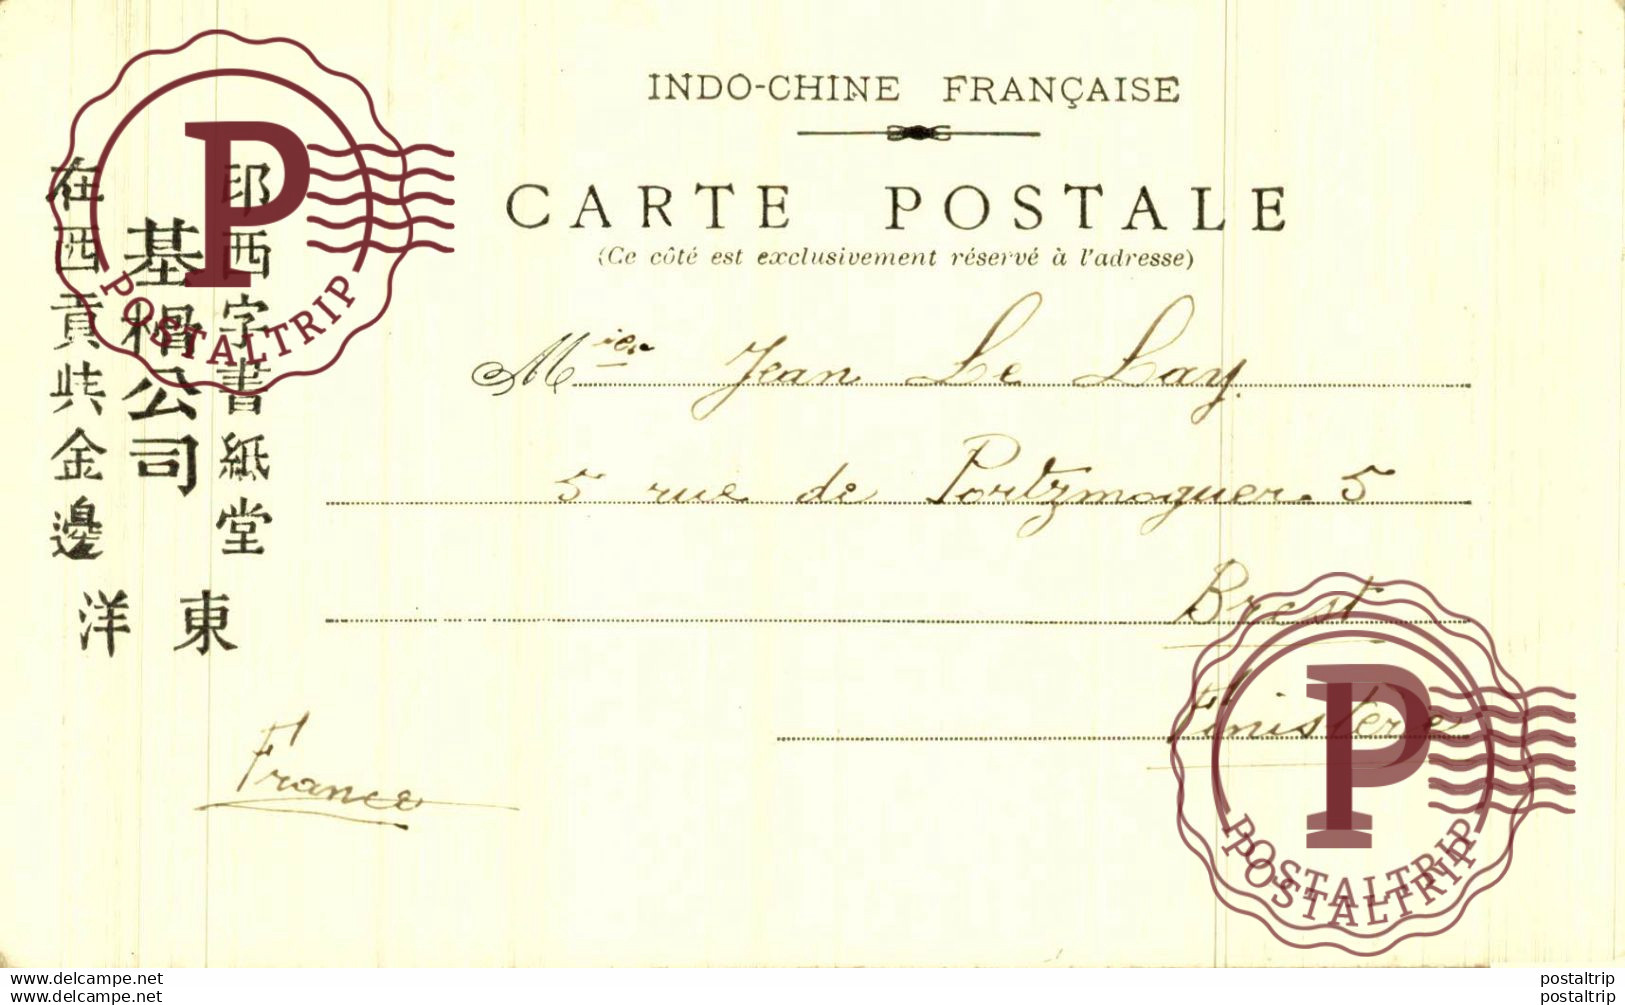 INDO-CHINE FRANÇAISE
CARTE POSTALE
(Ce côté est exclusivement réservé à l'adresse)
Mier Jean Le Lay.
5 rue de Portzmoguer. 5
Brest
Finistère
France
印西字書紙堂
基相公司
在西貢共金邊
東洋
P
POSTALTRIP
P
POSTALTRIP
POSTALTRIP
www.delcampe.net
www.delcampe.net
postaltrip
postaltrip